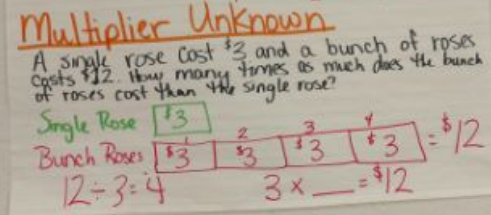 Multiplier Unknown
A single rose cost $3 and a bunch of roses
costs $12. How many times as much does the bunch
of roses cost than the single rose?
Single Rose $3
1 2 3 4
Bunch Roses $3 $3 $3 $3 = $12
12÷3=4 3 x __ = $12